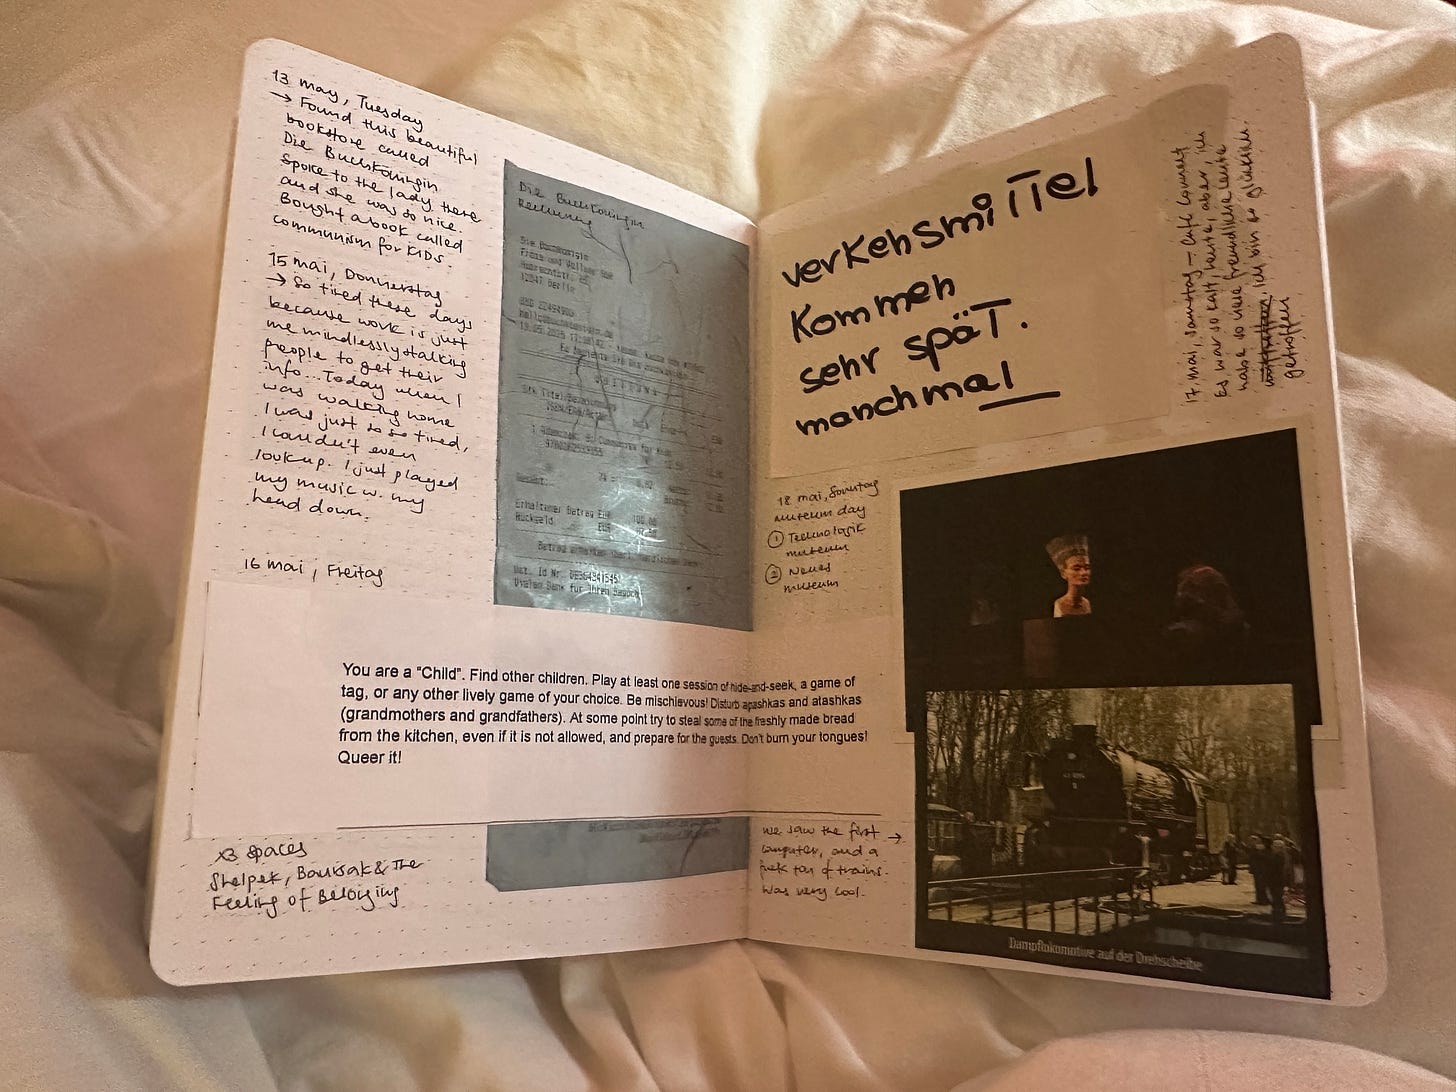 13 may, Tuesday
→ Found this beautiful
bookstore called
Die Buchkönigin
Spoke to the lady there
and she was so nice.
Bought a book called
communism for KIDS.
15 mai, Donnerstag
→ So tired these days
because work is just
me mindlessly stalking
people to get their
info... Today when I
was walking home
I was just so so tired,
I couldn't even
look up. I just played
my music w. my
head down.
16 mai, Freitag
Die Buchkönigin
Rechnung
Die Buchkönigin
12047 Berlin
Erhaltener Betrag EUR 100.00
Rückgeld EUR
Vielen Dank für Ihren Besuch
You are a "Child". Find other children. Play at least one session of hide-and-seek, a game of
tag, or any other lively game of your choice. Be mischievous! Disturb apashkas and atashkas
(grandmothers and grandfathers). At some point try to steal some of the freshly made bread
from the kitchen, even if it is not allowed, and prepare for the guests. Don't burn your tongues!
Queer it!
x3 spaces
Shelpek, Baursak & The
Feeling of Belonging
verkehsmittel
kommen
sehr spät.
manchmal
17 mai, samstag – Café Connect
Es war so kalt heute, aber ich
habe so viele freundliche Leute
getroffen ich bin so glücklich.
18 mai, Sonntag
museum day
① Technologik
museum
② Neues
museum
we saw the first →
computer, and a
fuck ton of trains.
Was very cool.
Dampflokomotive auf der Drehscheibe